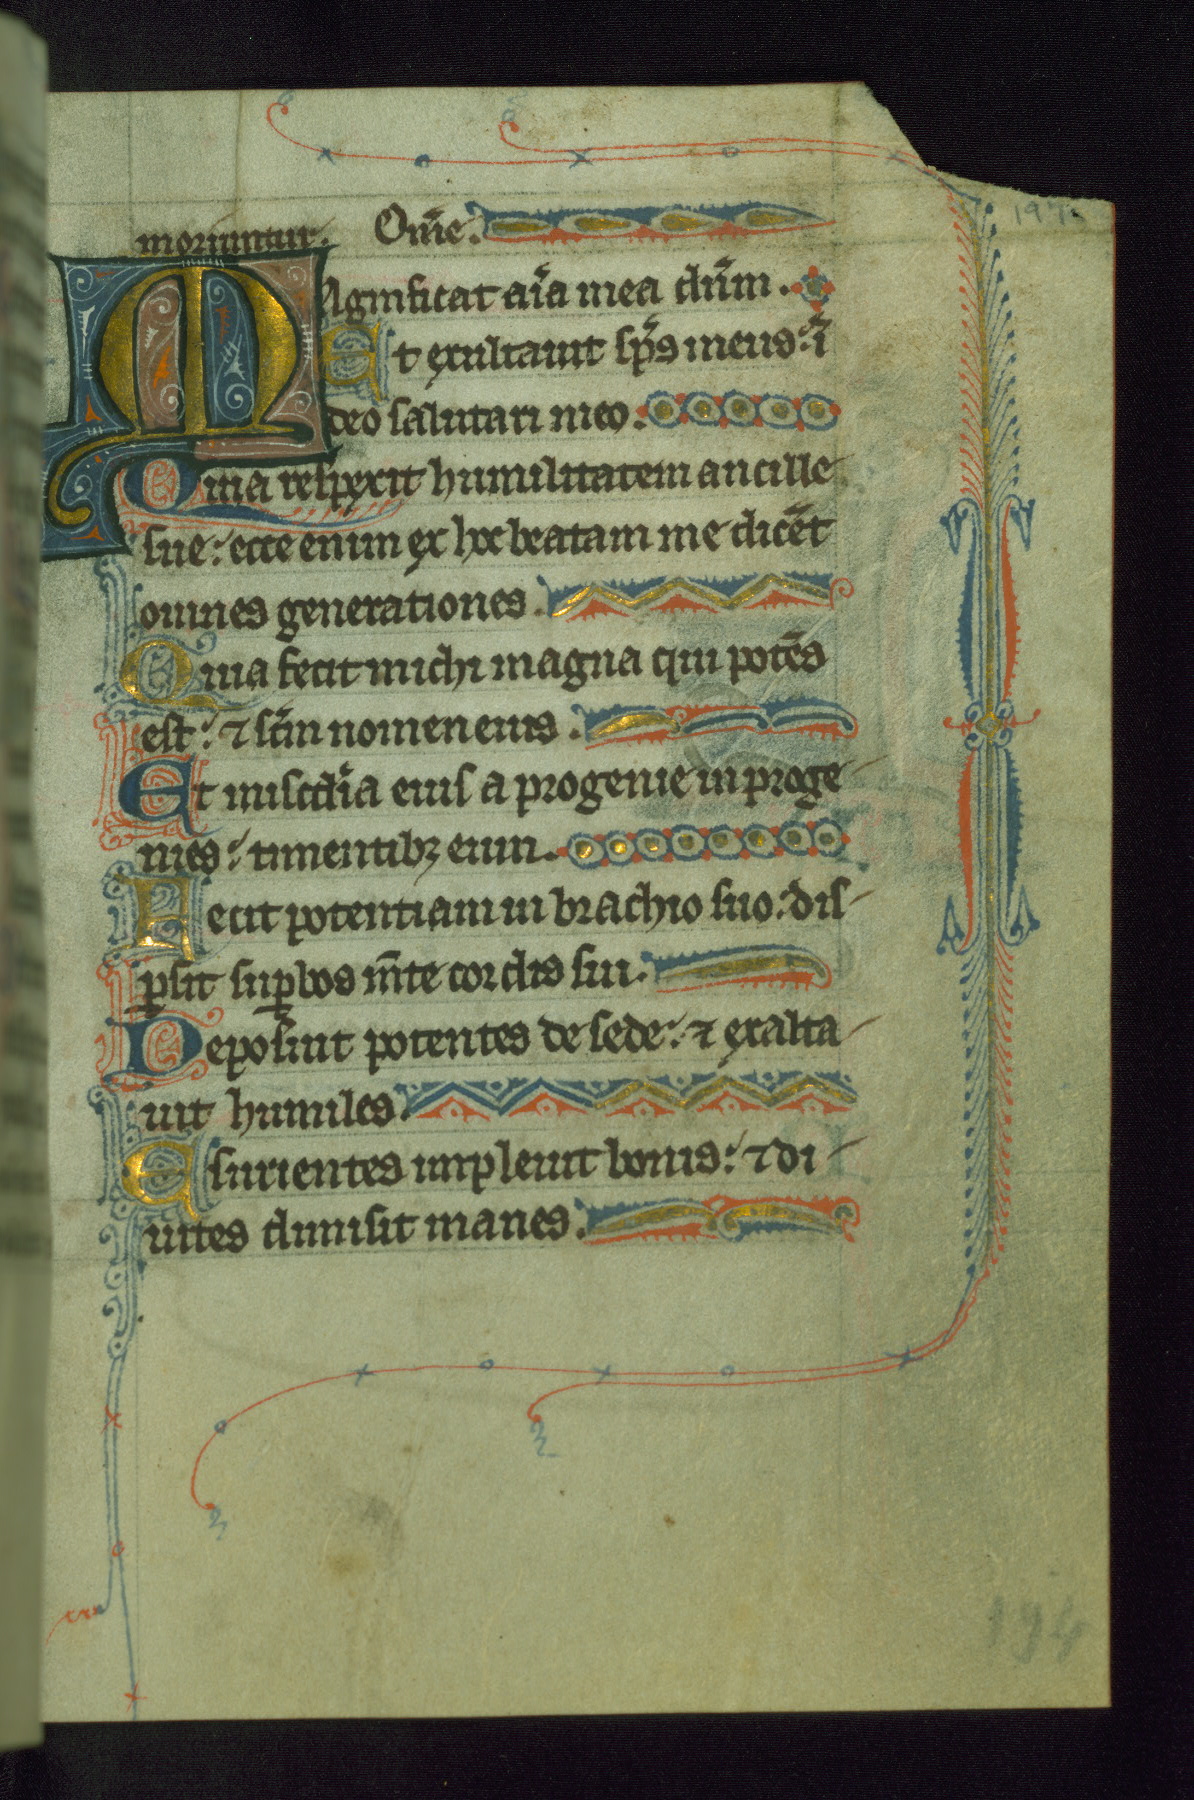 moriuntur. Om̄e.
197.
Magnificat aīa mea dn̄m.
Et exultauit sp̄s meus: ī
deo salutari meo.
Quia respexit humilitatem ancille
sue: ecce enim ex hoc beatam me dicēt
omnes generationes.
Quia fecit michi magna qui potēs
est: ⁊ sc̄m nomen eius.
Et misc̄dīa eius a progenie in proge
nies: timentibꝫ eum.
Fecit potentiam in brachio suo: dis
ꝑsit suꝑbos m̄te cordis sui.
Deposuit potentes de sede: ⁊ exalta
uit humiles.
Esurientes impleuit bonis: ⁊ di
uites dimisit inanes.
194